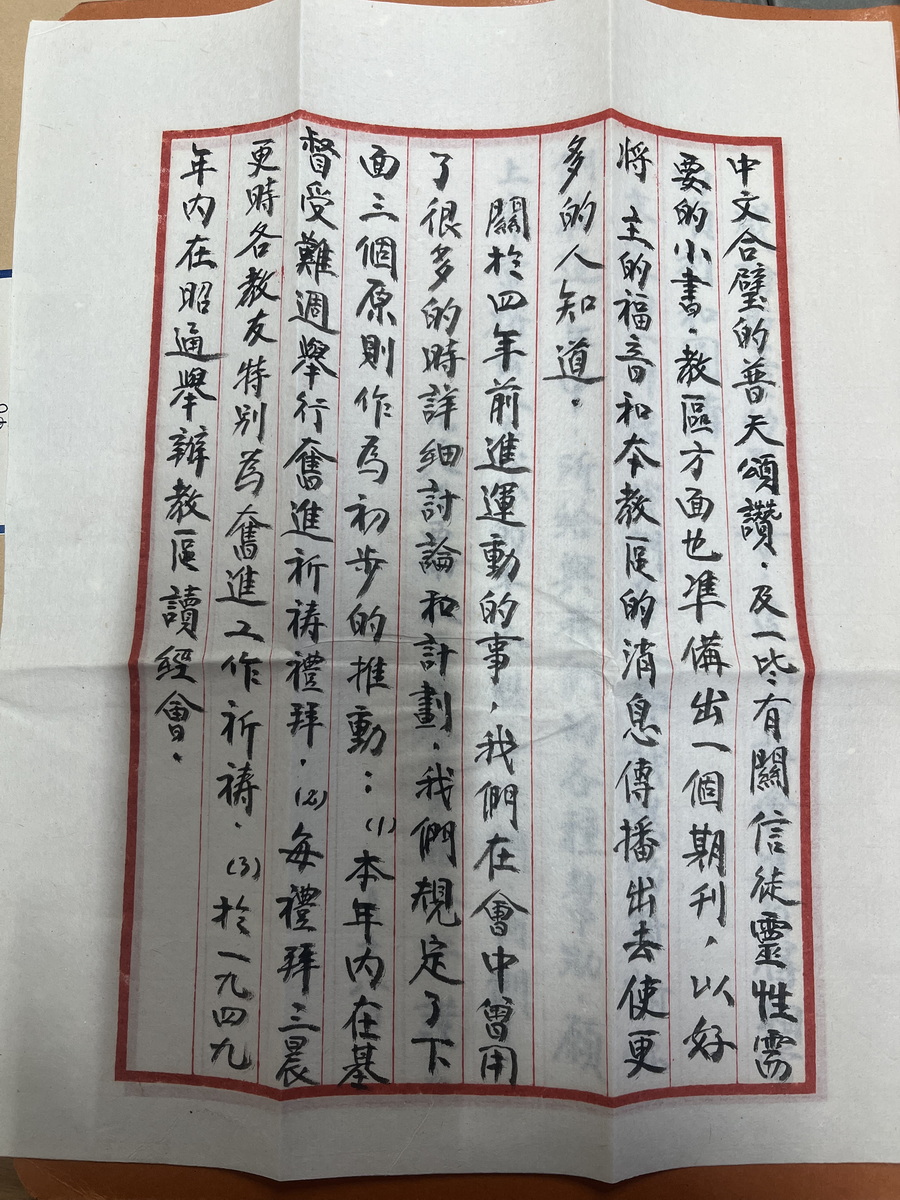 中文合璧的普天頌讚．及一些有關信徒靈性需
要的小書．教區方面也準備出一個期刊，以好
將 主的福音和本教區的消息傳播出去使更
多的人知道．
關於四年前進運動的事，我們在會中曾用
了很多的時詳細討論和計劃．我們規定了下
面三個原則作為初步的推動：⑴本年内在基
督受難週舉行奮進祈禱禮拜．⑵每禮拜三晨
更時各教友特别為奮進工作祈禱．⑶於一九四九
年内在昭通舉辦教區讀經會．